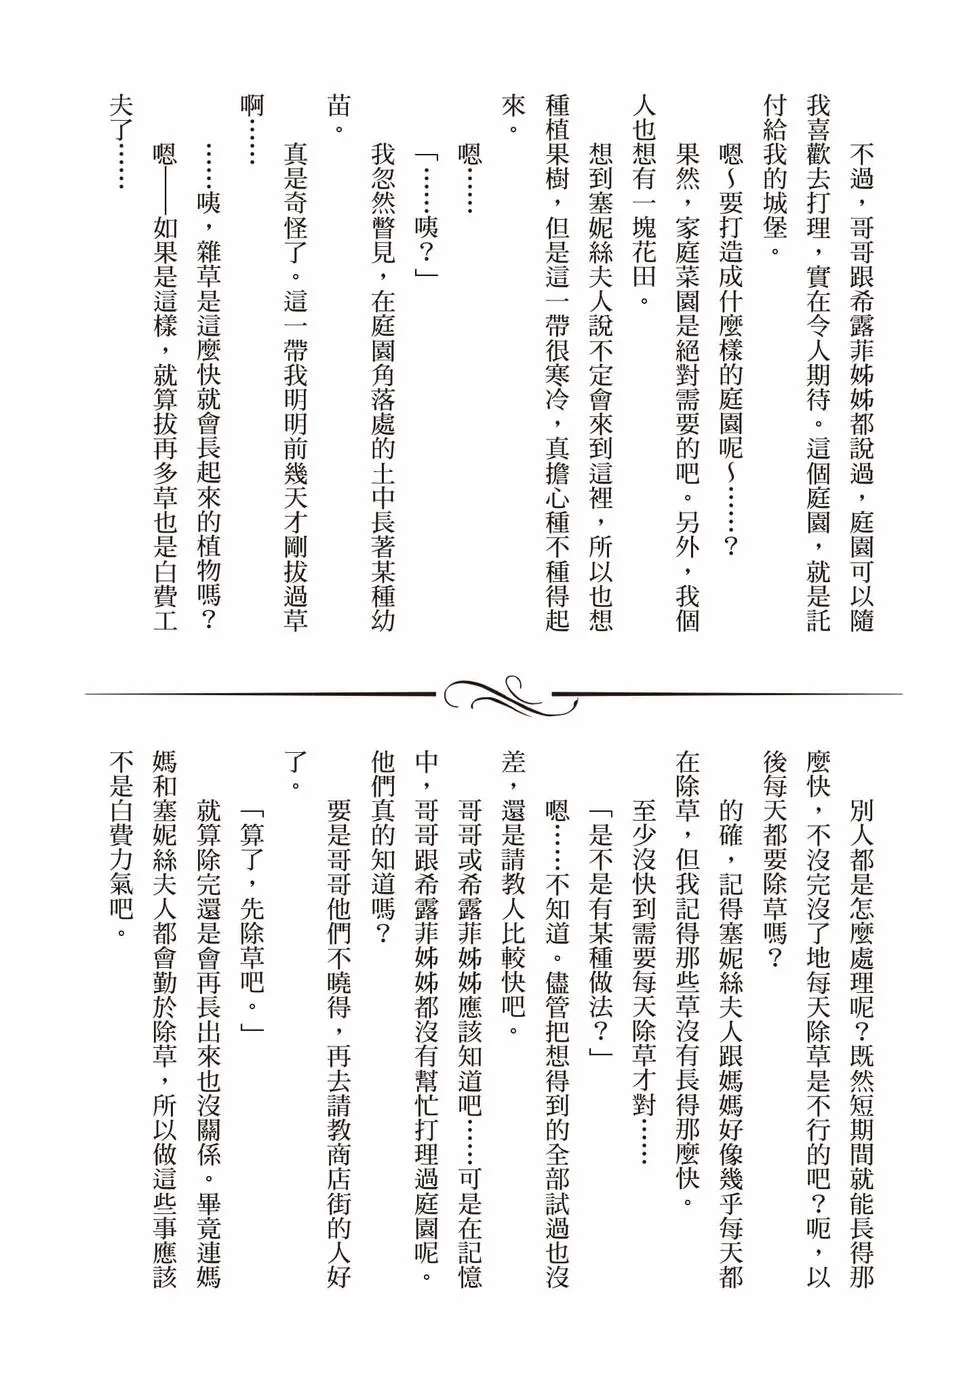 不過，哥哥跟希露菲姊姊都說過，庭園可以隨
我喜歡去打理，實在令人期待。這個庭園，就是託
付給我的城堡。
嗯～要打造成什麼樣的庭園呢～………？
果然，家庭菜園是絕對需要的吧。另外，我個
人也想有一塊花田。
想到塞妮絲夫人說不定會來到這裡，所以也想
種植果樹，但是這一帶很寒冷，真擔心種不種得起
來。
嗯……
「……咦？」
我忽然瞥見，在庭園角落處的土中長著某種幼
苗。
真是奇怪了。這一帶我明明前幾天才剛拔過草
啊……
……咦，雜草是這麼快就會長起來的植物嗎？
嗯——如果是這樣，就算拔再多草也是白費工
夫了……
別人都是怎麼處理呢？既然短期間就能長得那
麼快，不沒完沒了地每天除草是不行的吧？呃，以
後每天都要除草嗎？
的確，記得塞妮絲夫人跟媽媽好像幾乎每天都
在除草，但我記得那些草沒有長得那麼快。
至少沒快到需要每天除草才對……
「是不是有某種做法？」
嗯……不知道。儘管把想得到的全部試過也沒
差，還是請教人比較快吧。
哥哥或希露菲姊姊應該知道吧……可是在記憶
中，哥哥跟希露菲姊姊都沒有幫忙打理過庭園呢。
他們真的知道嗎？
要是哥哥他們不曉得，再去請教商店街的人好
了。
「算了，先除草吧。」
就算除完還是會再長出來也沒關係。畢竟連媽
媽和塞妮絲夫人都會勤於除草，所以做這些事應該
不是白費力氣吧。